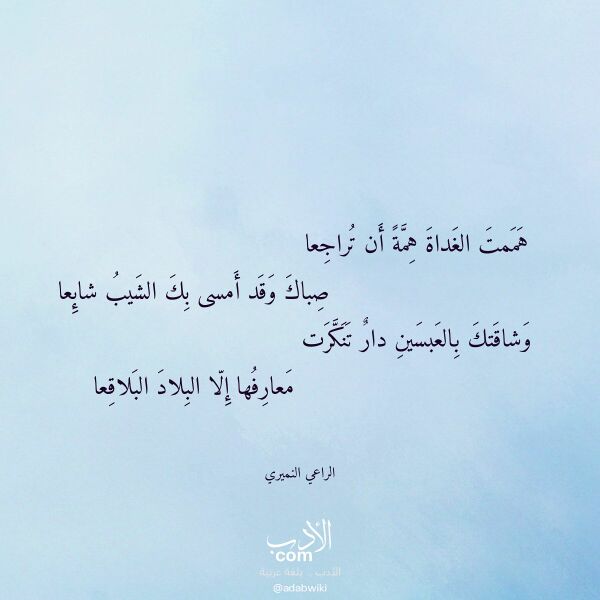 هَمَمتَ الغَداةَ هِمَّةً أَن تُراجِعا
صِباكَ وَقَد أَمسى بِكَ الشَيبُ شائِعا
وَشاقَتكَ بِالعَبسَينِ دارٌ تَنَكَّرَت
مَعارِفُها إِلّا البِلادَ البَلاقِعا
الراعي النميري
الأدب
com
الأدب .. بلغة عربية
@adabwiki